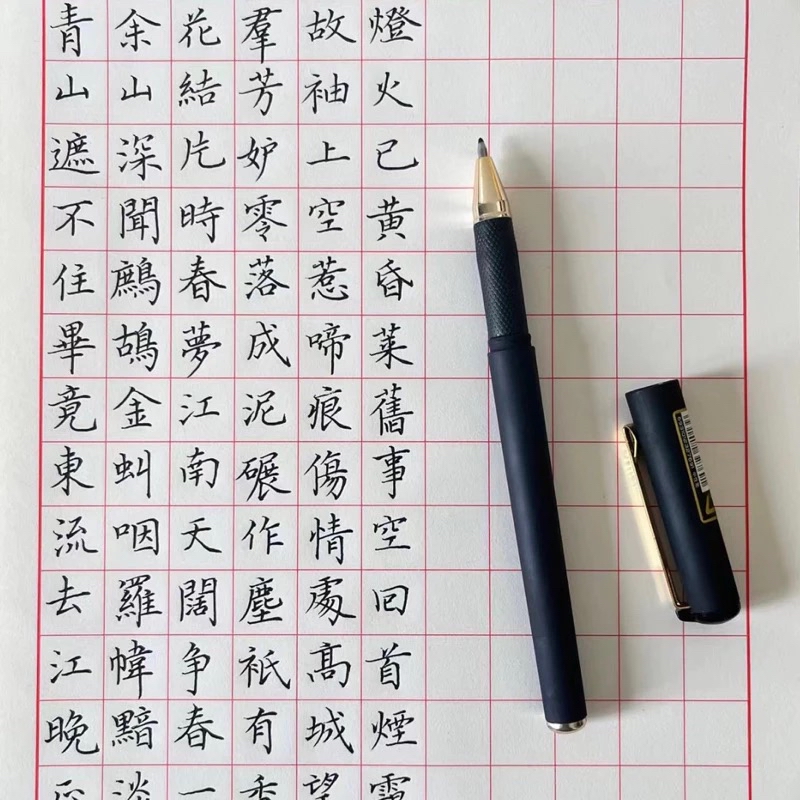 青山遮不住畢竟東流去江晚正
余山深聞鷓鴣金虬咽羅幃黯淡
花結片時春夢江南天闊争春一
羣芳妒零落成泥碾作塵衹有香
故袖上空惹啼痕傷情處高城望
燈火已黃昏萊舊事空回首煙